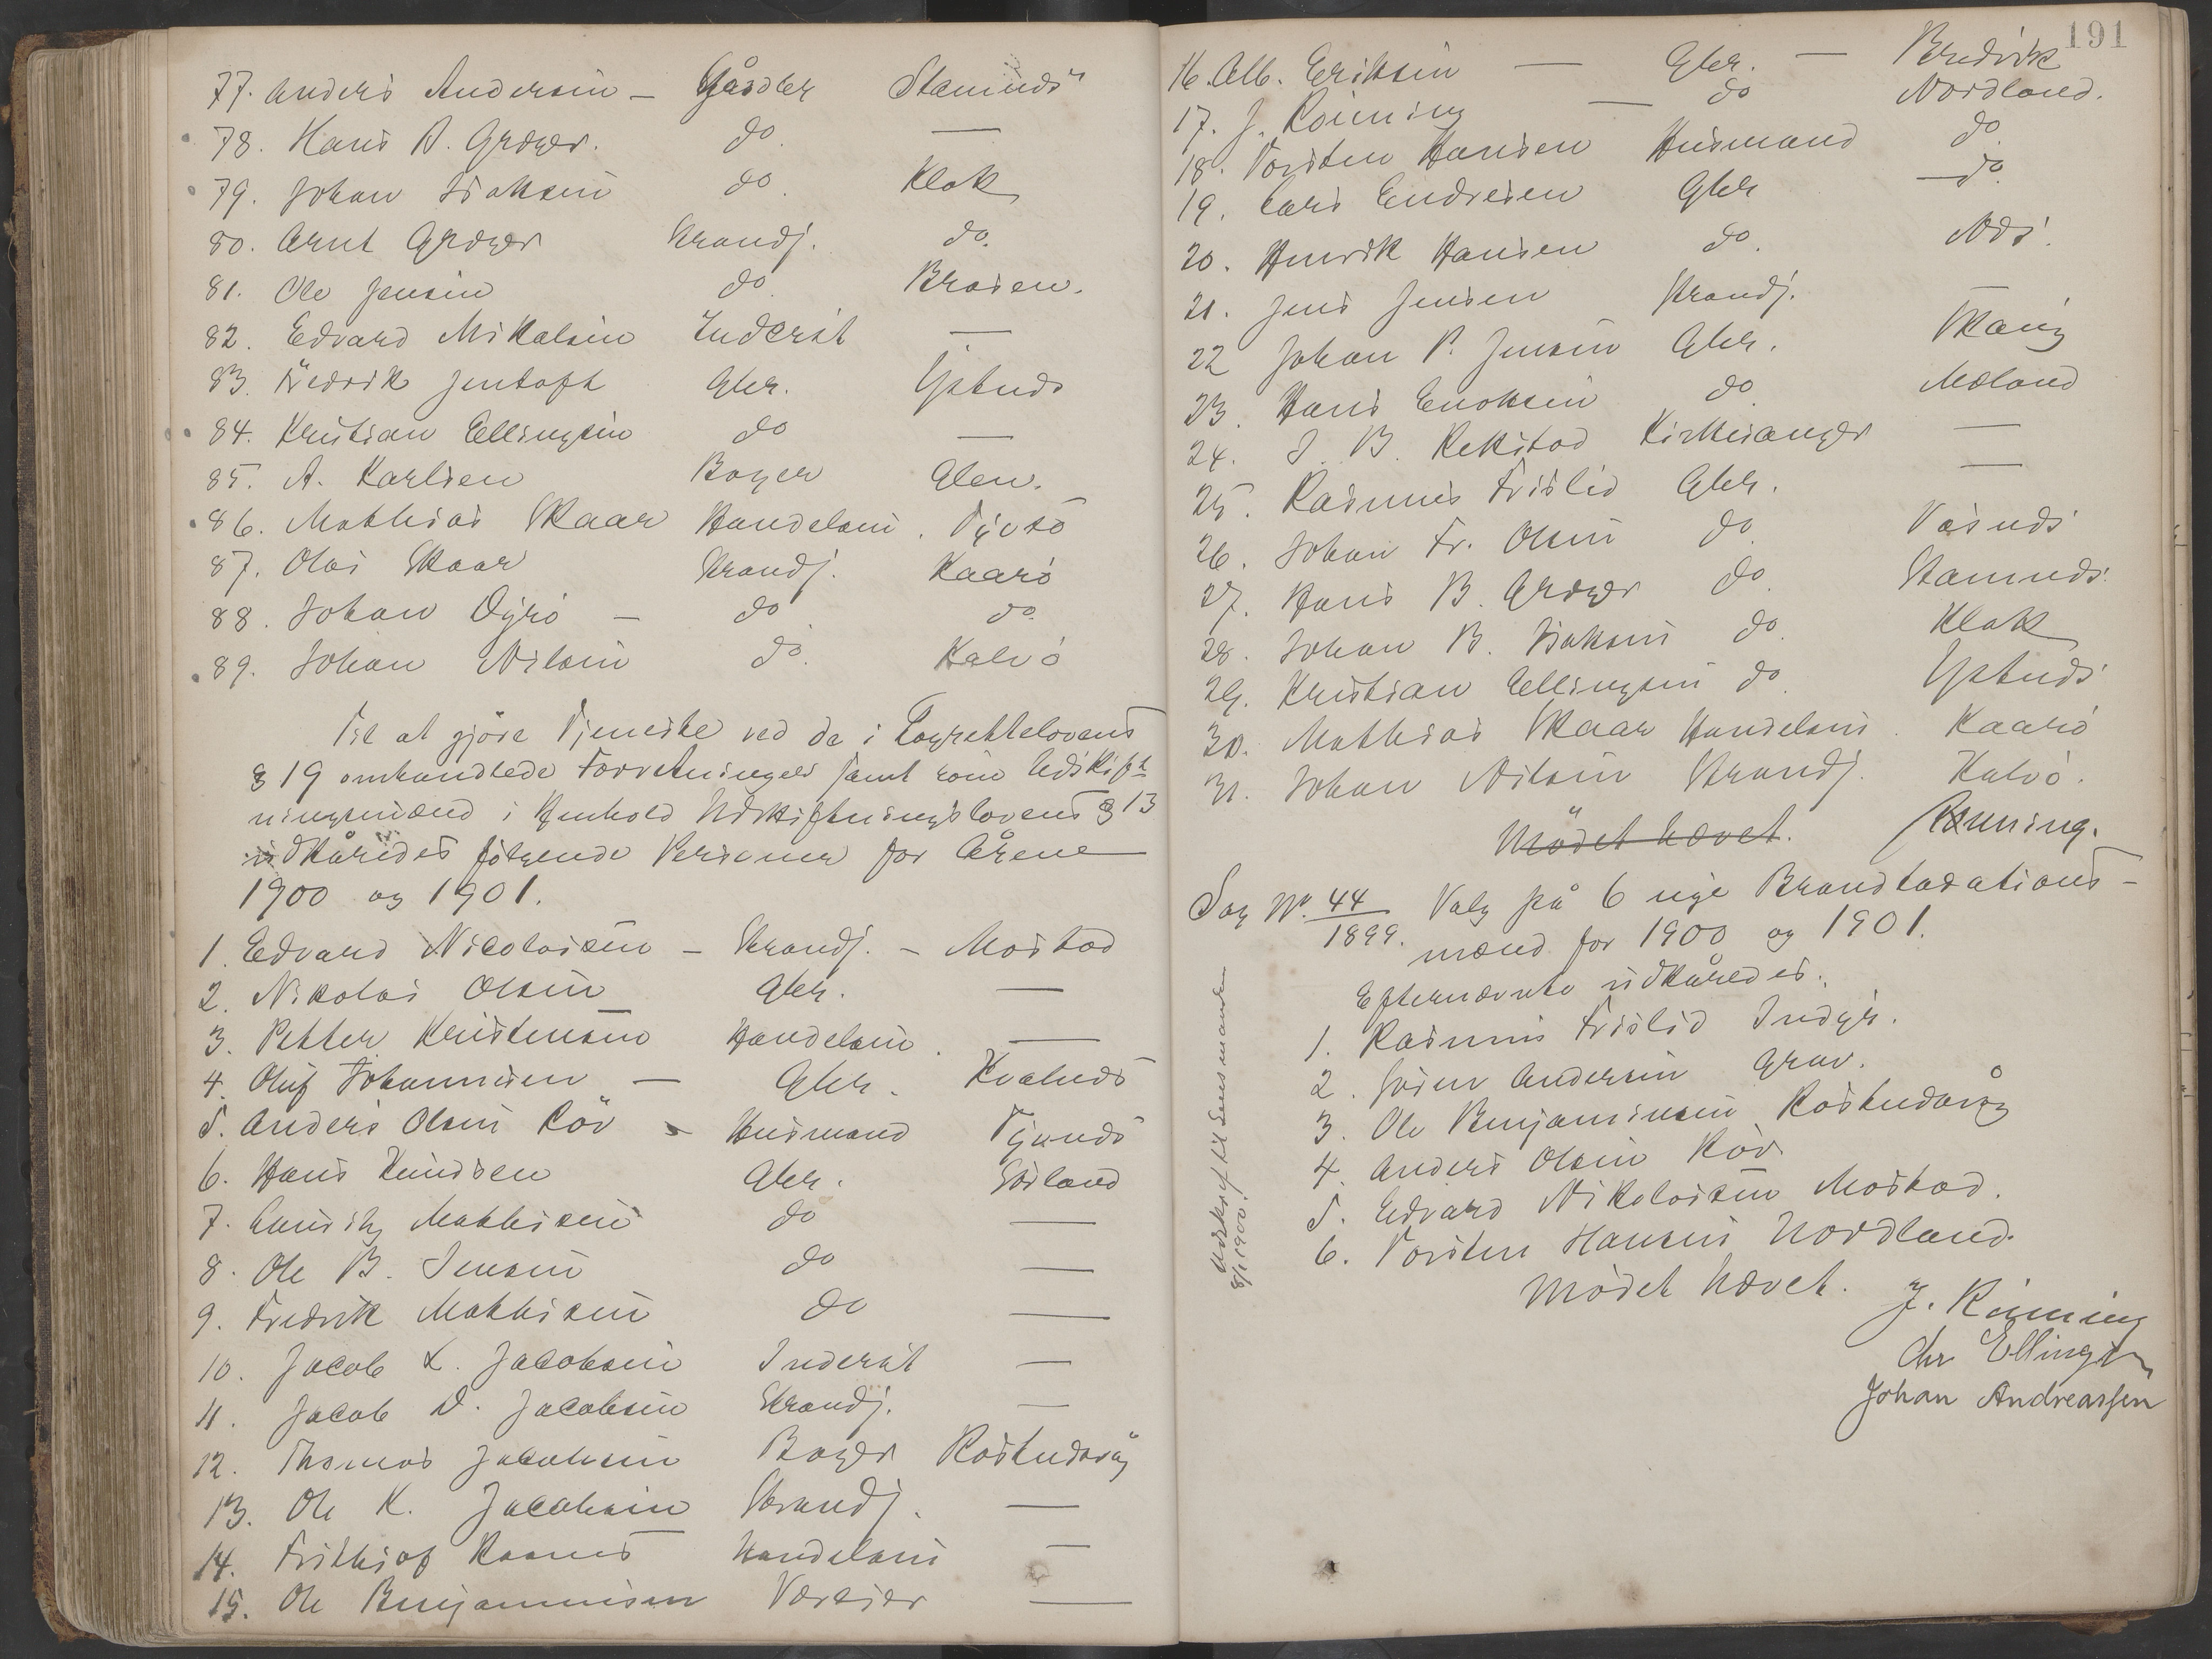 77. Anders Andersen – Gårdbr Stamnds
78. Hans B. Grøger. do. —
79. Johan Isaksen do. Klak
80. Arnt Grøger Strands. do.
81. Ole Jensen do. Brasen.
82. Edvard Mikalsen Inderst —
83. Fredrik Jentoft Gbr. Ystnds
84. Kristian Ellingsen do —
85. A. Karlsen Bager Glen.
86. Mathias Skaar Handelsm. Tyvsö
87. Olai Skaar Strands. Kaarö
88. Johan Dyrö – do do.
89. Johan Nilsen do. Kalvö
Til at gjöre Tjeneste ved de i Lagrettelovens
§ 19 omhandlede Forretninger samt som Udskift
ningsmænd i Henhold Udskiftningslovens § 13
udkåredes følgende Personer for Årene
1900 og 1901.
1. Edvard Nicolaisen – Strands. – Mostad
2. Nikolai Olsen Gbr. —
3. Petter Kristensen Handelsm. —
4. Oluf Johannesen — Gbr. Kvalnds
5. Anders Olsen Röv – Husmand Tyvnds
6. Hans Knudsen Gbr. Sörland
7. Lauritz Mathisen do —
8. Ole B. Jensen do —
9. Fredrik Mathisen do —
10. Jacob L. Jacobsen Inderst —
11. Jacob D. Jacobsen Strands. —
12. Thomas Jacobsen Bager Röstndsvåg
13. Ole K. Jacobsen Strands. —
14. Frithjof Raanes Handelsm —
15. Ole Benjaminsen Væreier —
191
16. Alb. Eriksen — Gbr. — Bredvik
17. J. Rönning — do Nordland.
18. Torsten Hansen Husmand do
19. Lars Endresen Gbr —do
20. Henrik Hansen do. Nds.
21. Jens Jensen Strands. —
22 Johan P. Jensen Gbr. Skaug
23. Hans Enoksen do. Meland
24. J. B. Rekstad Kirkesanger —
25. Rasmus Frislid Gbr. —
26. Johan Fr. Olsen do. Vasnds
27. Hans B. Grøger do. Stamnds.
28. Johan B. Isaksen do. Klak
29. Kristian Ellingsen do. Ystnds
30. Mathias Skaar Handelsm. Kaarö
31. Johan Nilsen Strands. Kalvö.
Mödet hævet. Rönning.
Sag Nr. 44/1899. Valg på 6 nye Brandtaxations-
mænd for 1900 og 1901.
Efternævnte udkåredes:
1. Rasmus Frislid Indyr.
2. Sören Andersen Grav.
3. Ole Benjaminsen Röstndvåg
4. Anders Olsen Röv
5. Edvard Nikolaisen Mostad.
6. Torsten Hansen Nordland.
Mödet hævet.
J. Rönning
Chr Ellingsen
Johan Andreassen
Udskrift til Lensmanden
8/1 1900.